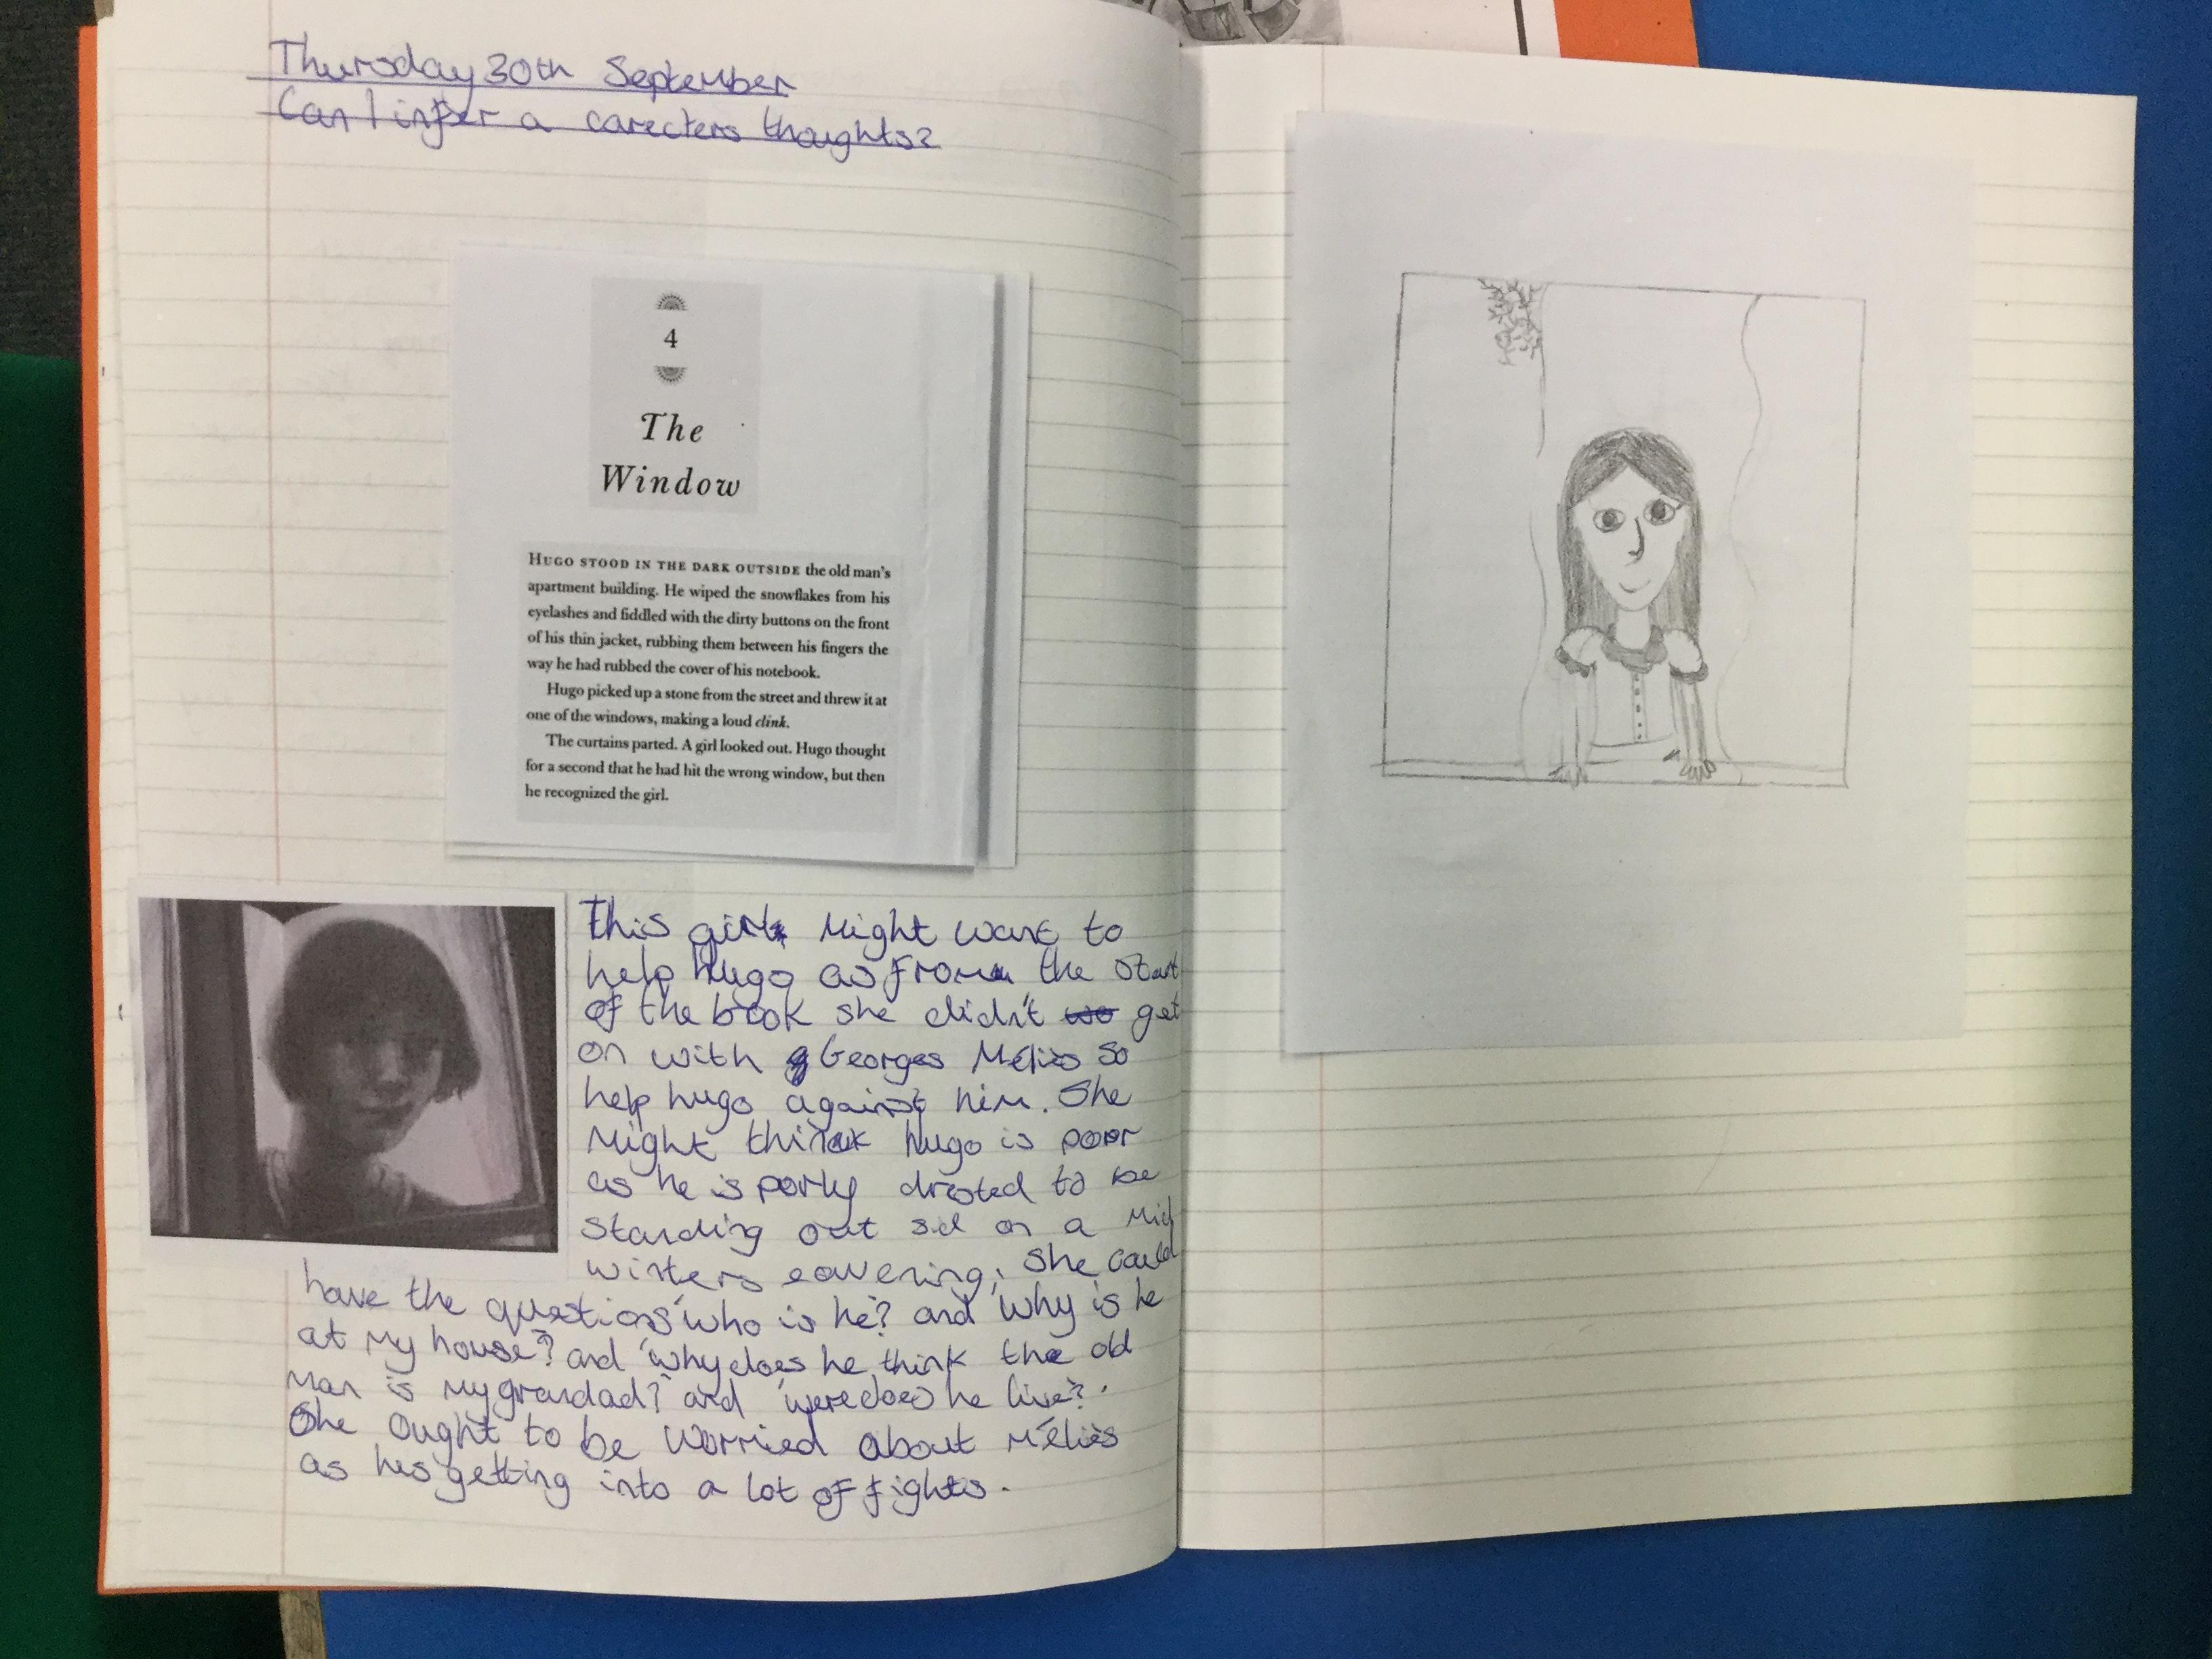 Thursday 30th September
Can I infer a carecters thoughts?
4
The
Window
HUGO STOOD IN THE DARK OUTSIDE the old man's
apartment building. He wiped the snowflakes from his
eyelashes and fiddled with the dirty buttons on the front
of his thin jacket, rubbing them between his fingers the
way he had rubbed the cover of his notebook.
Hugo picked up a stone from the street and threw it at
one of the windows, making a loud clink.
The curtains parted. A girl looked out. Hugo thought
for a second that he had hit the wrong window, but then
he recognized the girl.
This girl Might want to
help hugo as from the start
of the book she didn't get
on with Georges Méliès so
help hugo against him. She
Might think hugo is poor
as he is porly dressted to be
standing out sid on a mid
winters eavening. She could
have the questions 'who is he? and 'why is he
at my house? and 'why does he think the old
man is my grandad? and 'were does he live?.
She ought to be worried about Méliès
as hes getting into a lot of fights.